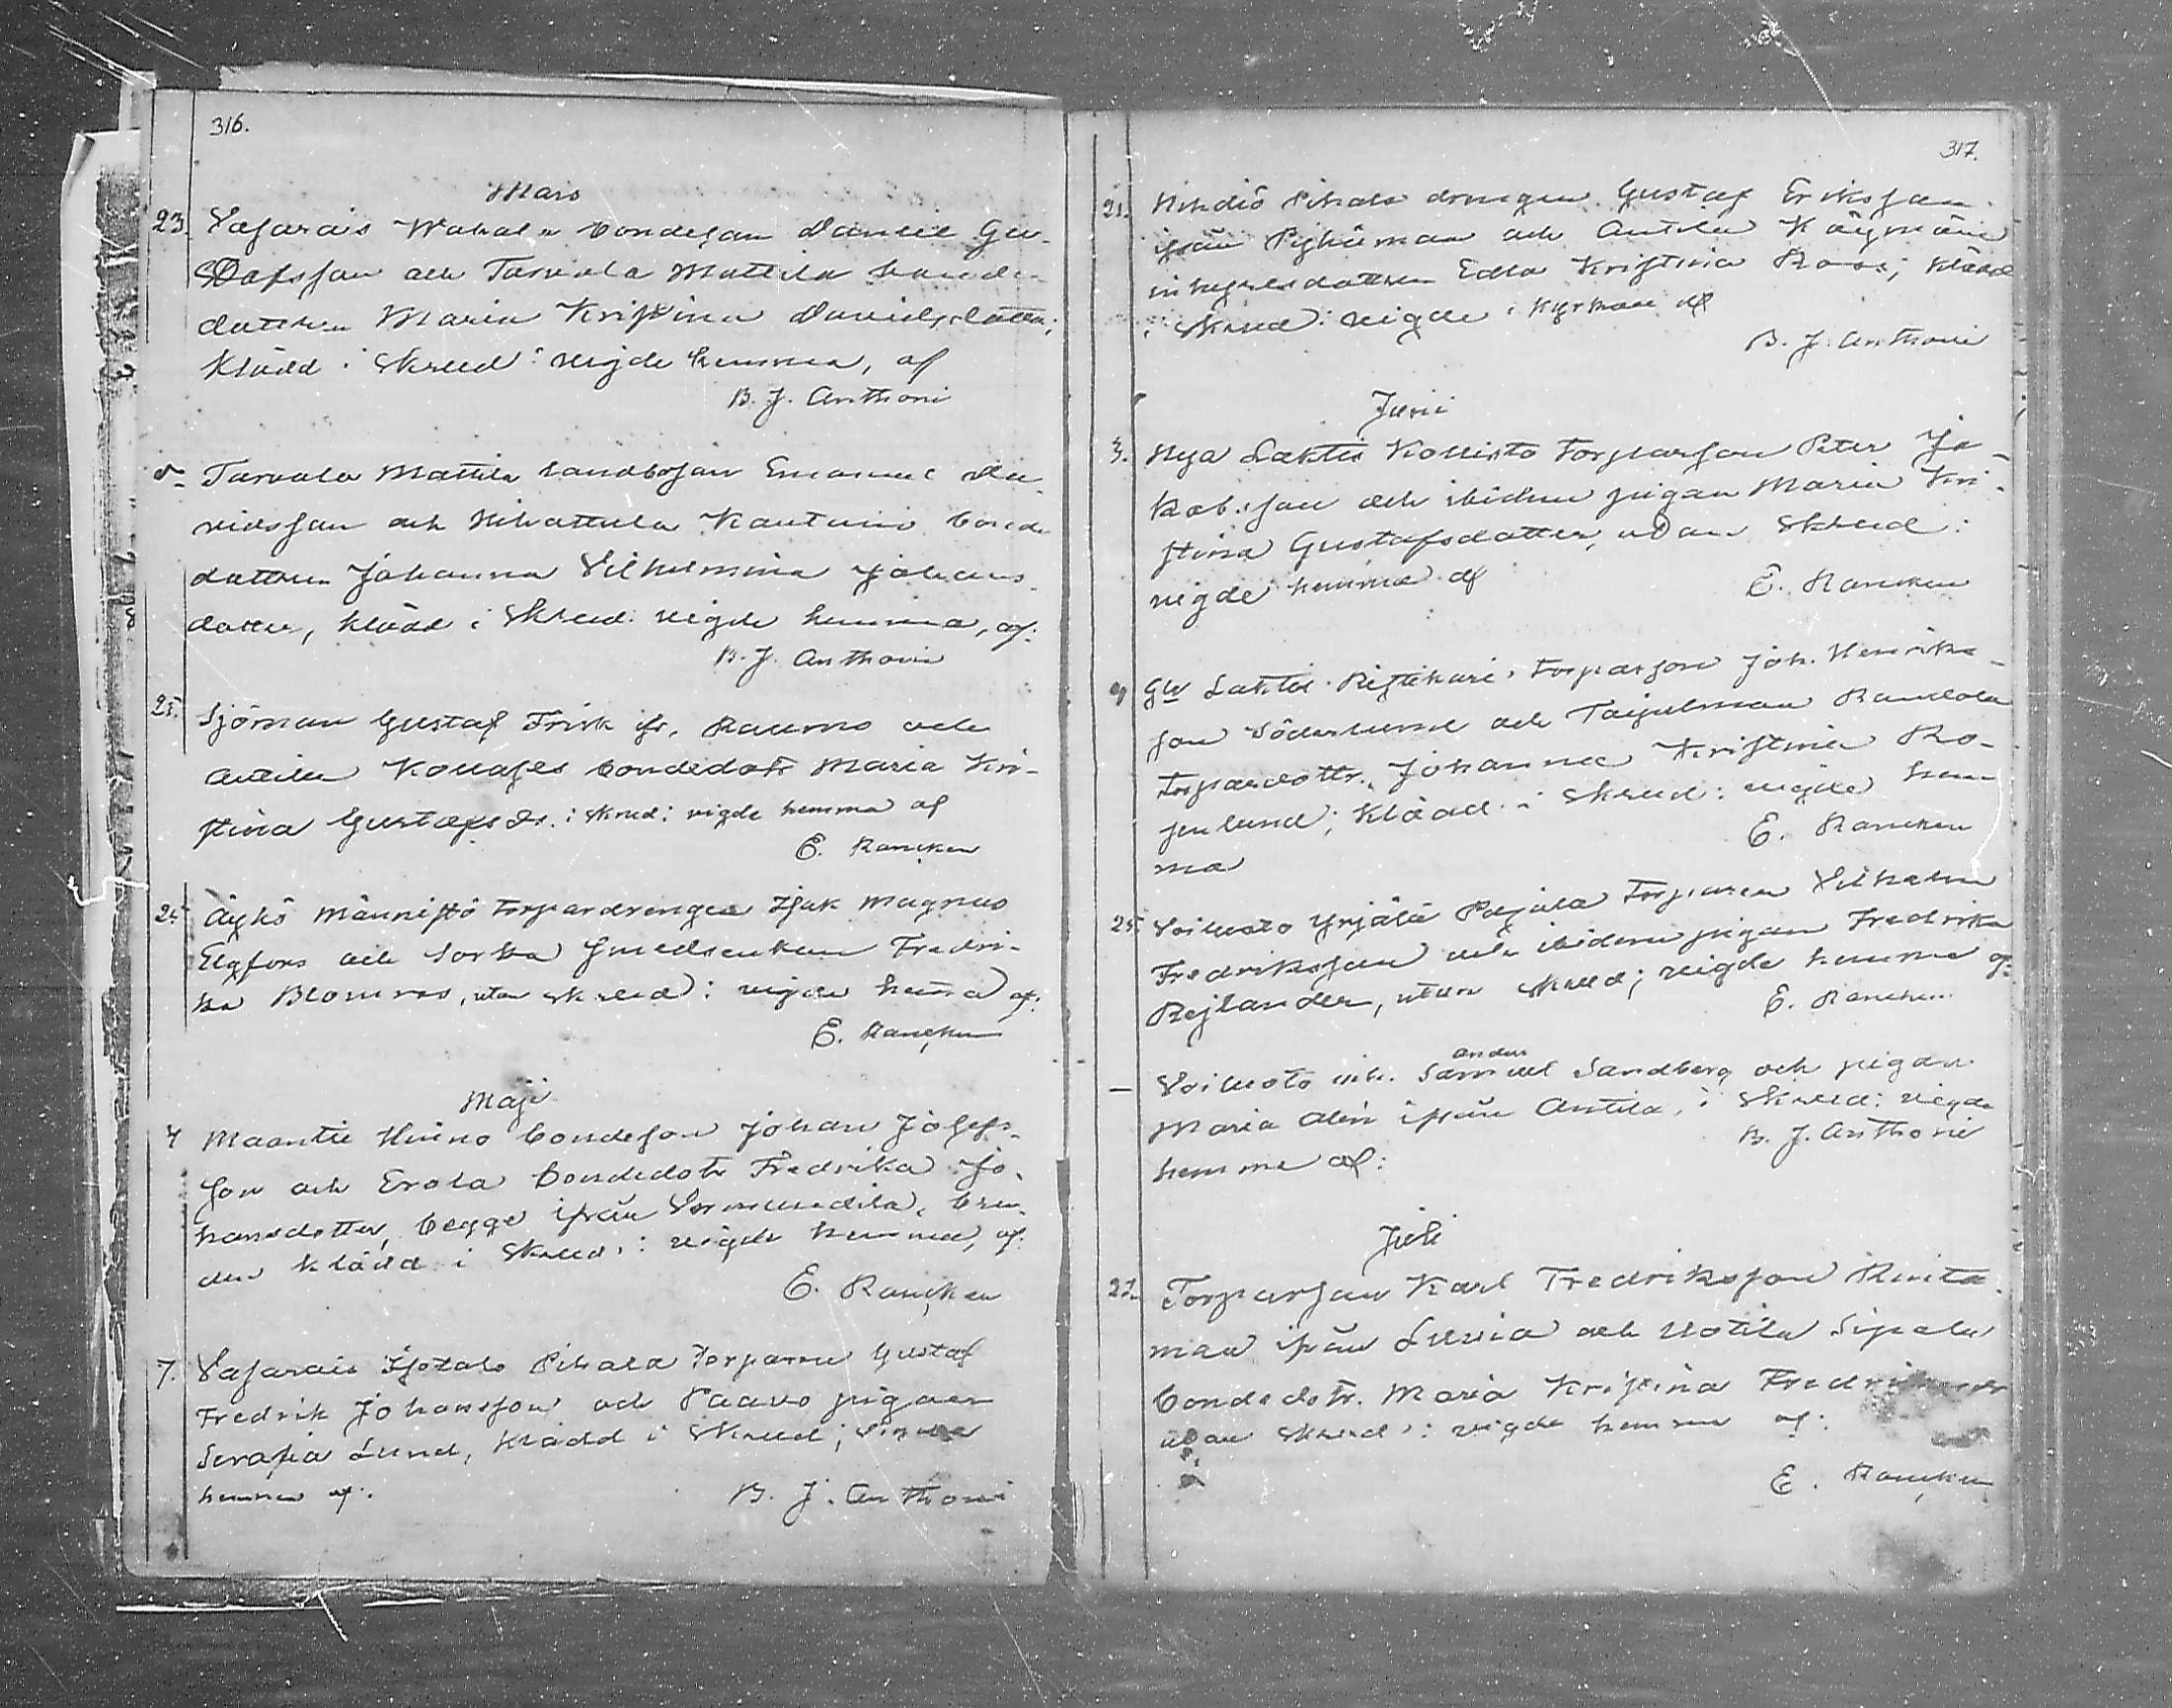 316.
Mars
23. Vafarais Wahala bondesson Daniel Gu-
stafsson och Tarvala Mattila bonde
dottren Maria Kristina Davidsdotter;
klädd i Skrud: vigde hemma, af
B. J. Anthoni
Tarvala Mattila landbosson Emanuel Da-
vidsson och Kautuni bonde
dottren Johanna Vilhelmina Johans-
dotter, klädd i Skrud: vigde hemma, af:
B. J. Anthoni
25. Sjöman Gustaf Frisk fr. Raumo och
Antila bondedotr Maria Kri-
stina Gustafsdr. i skrud: vigde hemma af
E. Rancken
Äyhö Männistö torpardrengen Isak Magnus
Elgfors och Sorka Smedsenkan Fredri-
ka Blomros, utan skrud: vigde hema af:
E. Rancken
Maji
4 Maantie Heino bondeson Johan Josefs-
son och Erola bondedotr Fredrika Jo-
hansdotter, begge ifrån bru-
den klädd i Skrud: vigde hemma, af:
E. Rancken
7. Vafarais Pihala Torparen Gustaf
Fredrik Johansson och Paavo pigan
Serafia Lund, klädd i Skrud;
hemma af:
B. J. Anthoni
317.
21. Pihala drengen Gustaf Eriksson
ifrån Pyhämaa och Antila
inhysesdottren Edla Kristina Roos; klädd
i Skrud: vigde i Kyrkan af
B. J. Anthoni
Junii
3. Nya Laktis Kollisto Torparson Peter Ja-
kobsson och ibidem pigan Maria Kri-
stina Gustafsdotter, utan Skrud:
vigde hemma af
E. Rancken
9 Gla Laktis torparson Joh. Henriks-
son Söderlund och Taipalmaa Randala
torparedottr. Johanna Kristina Ro-
senlund; klädd i Skrud: vigde hem
ma
E. Rancken
25. Voiluoto Yrjälä Pajula Torparen Vilhelm
Fredriksson och ibidem pigan Fredrika
Rejlander, utan skrud; vigde hemma af:
E. Rancken
— Voiluoto inh. Samuel Sandberg och pigan
Maria Alén ifrån Antila, i Skrud: vigde
hemma af:
B. J. Anthoni
Juli
Torparson Karl Fredriksson
man ifrån Luvia och Uotila Sipala
bondedotr. Maria Kristina
utan Skrud: vigde hemma af:
E. Rancken